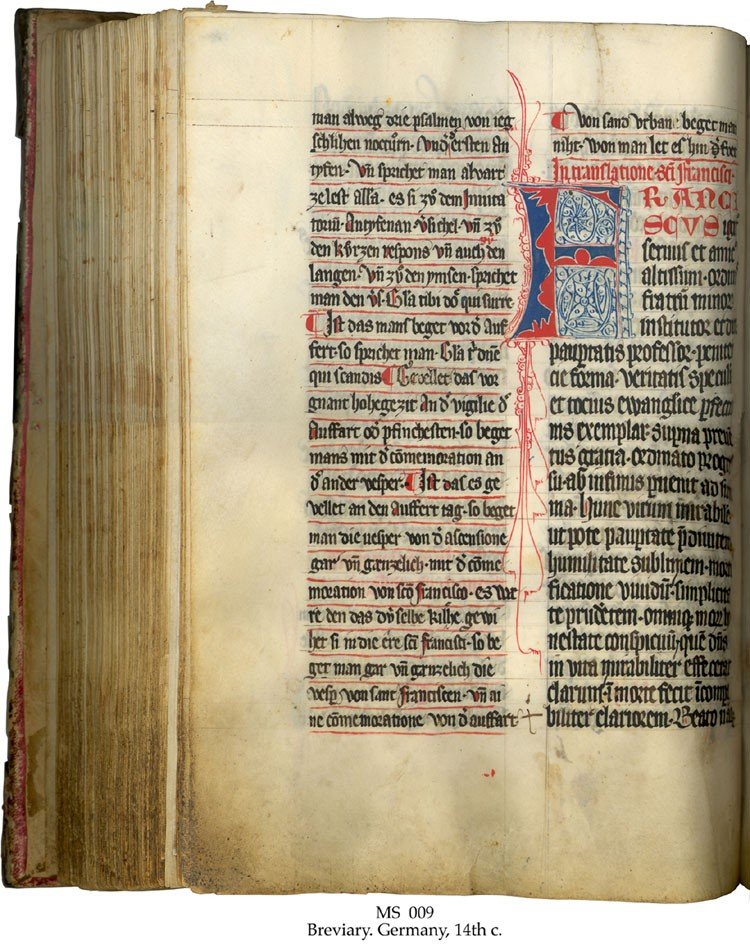 man alweg drie psalmen von ieg
schlihen nocturn· Und ersten an
tyfen· Vn sprichet man alwart
zelest assa· es si zv dem Inuita
toriu· Antyfenan· Vsichel· vn zv
den kvrzen respons vn auch den
langen· Vn zv den ymsen sprichet
man den vs· Gla tibi do qui surre
Ist das mans beget vor d auf
fert· so sprichet man· Gla t dne
qui scandis Gevellet das vor
gnant hohegezit An d vigilie d
Auffart od pfinchesten· so beget
mans mit d comemoration an
d ander vesper· Ist das es ge
vellet an den auffert tag· so beget
man die vesper von d ascensione
gar vn genzelich· mit d come
moration von sco Francisco· es we
re den das dy selbe kilhe gewi
het si in die ere sci Francisci· so be
get man gar vn genzelich die
vesp von sant Franciscen· vn ai
ne comemoratione von d auffart
Von sand Vrbane beget man
niht· won man let es hin
In translatione· sci Francisci·
FRANCI
SCVS
seruus et amic
altissimi· ordin
fratru minor
institutor et
paupertatis professor· penite
cie forma· veritatis speculu
et tocius ewanglice pfecti
nis exemplar· supna preue
tus gratia· ordinato progr
su· ab infimis puenit ad
ma· Hunc virum mirabile
ut pote paupertate pdiuitem
humilitate sublimem· mor
ficatione viuidu· simplicita
te prudetem· omniq mor ho
nestate conspicuu· que dns
in vita mirabiliter effecerat
clarum· i morte fecit icompa
biliter clariorem· Beato
MS 009
Breviary. Germany, 14th c.